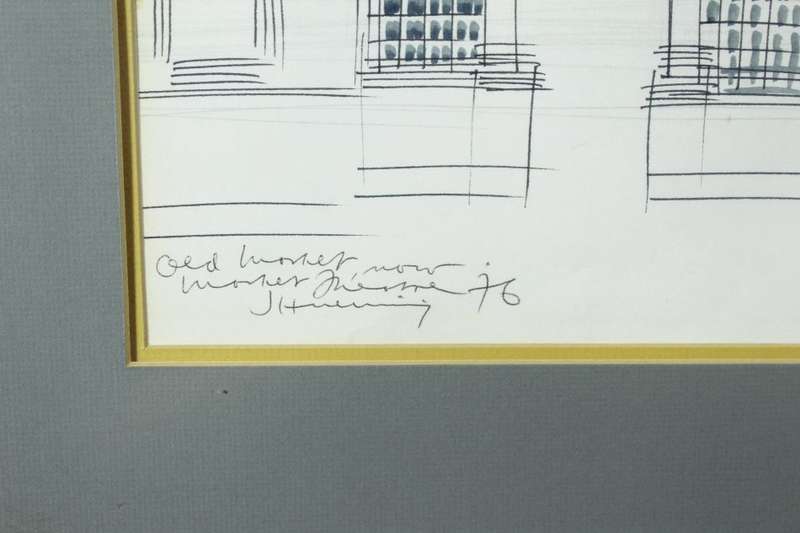 Old Market now
Market Theatre 76